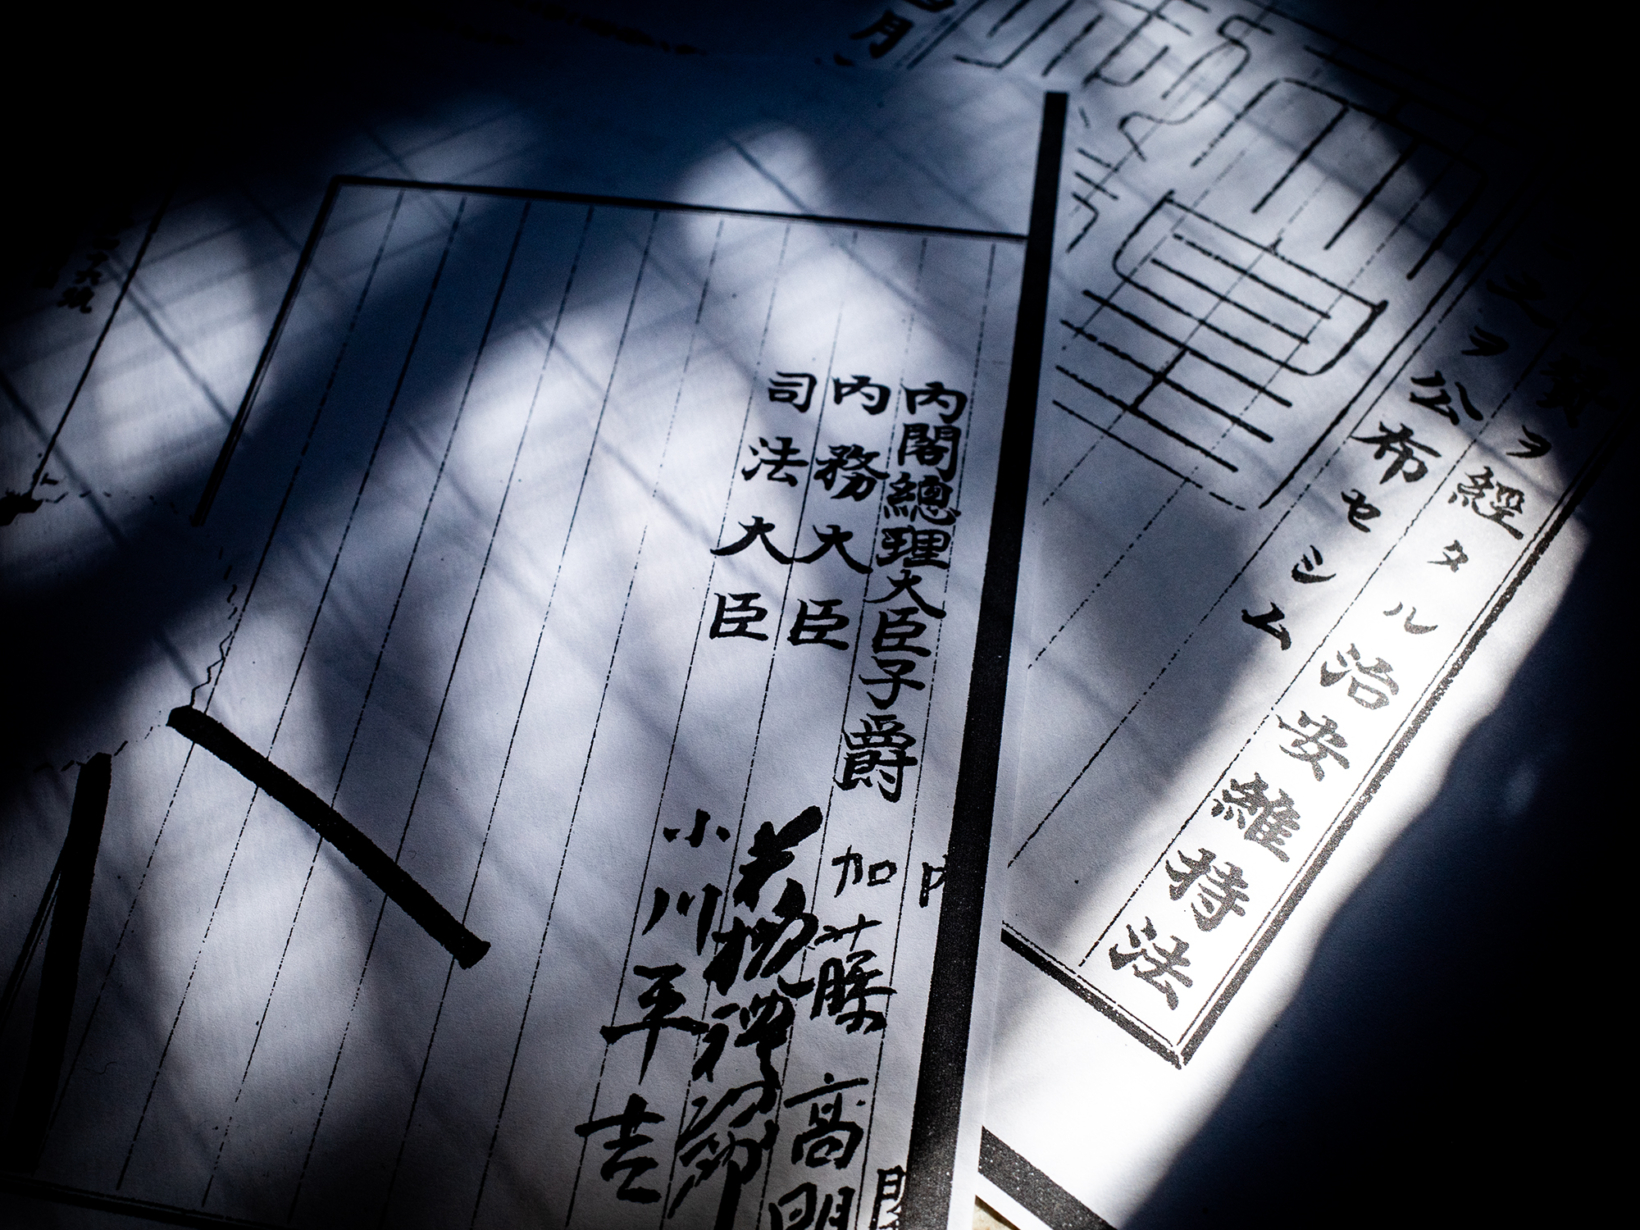 ヲ經タル治安維持法
之ヲ公布セシム
月
内
内閣總理大臣子爵 加藤高明
内務大臣 若槻禮次郎
司法大臣 小川平吉